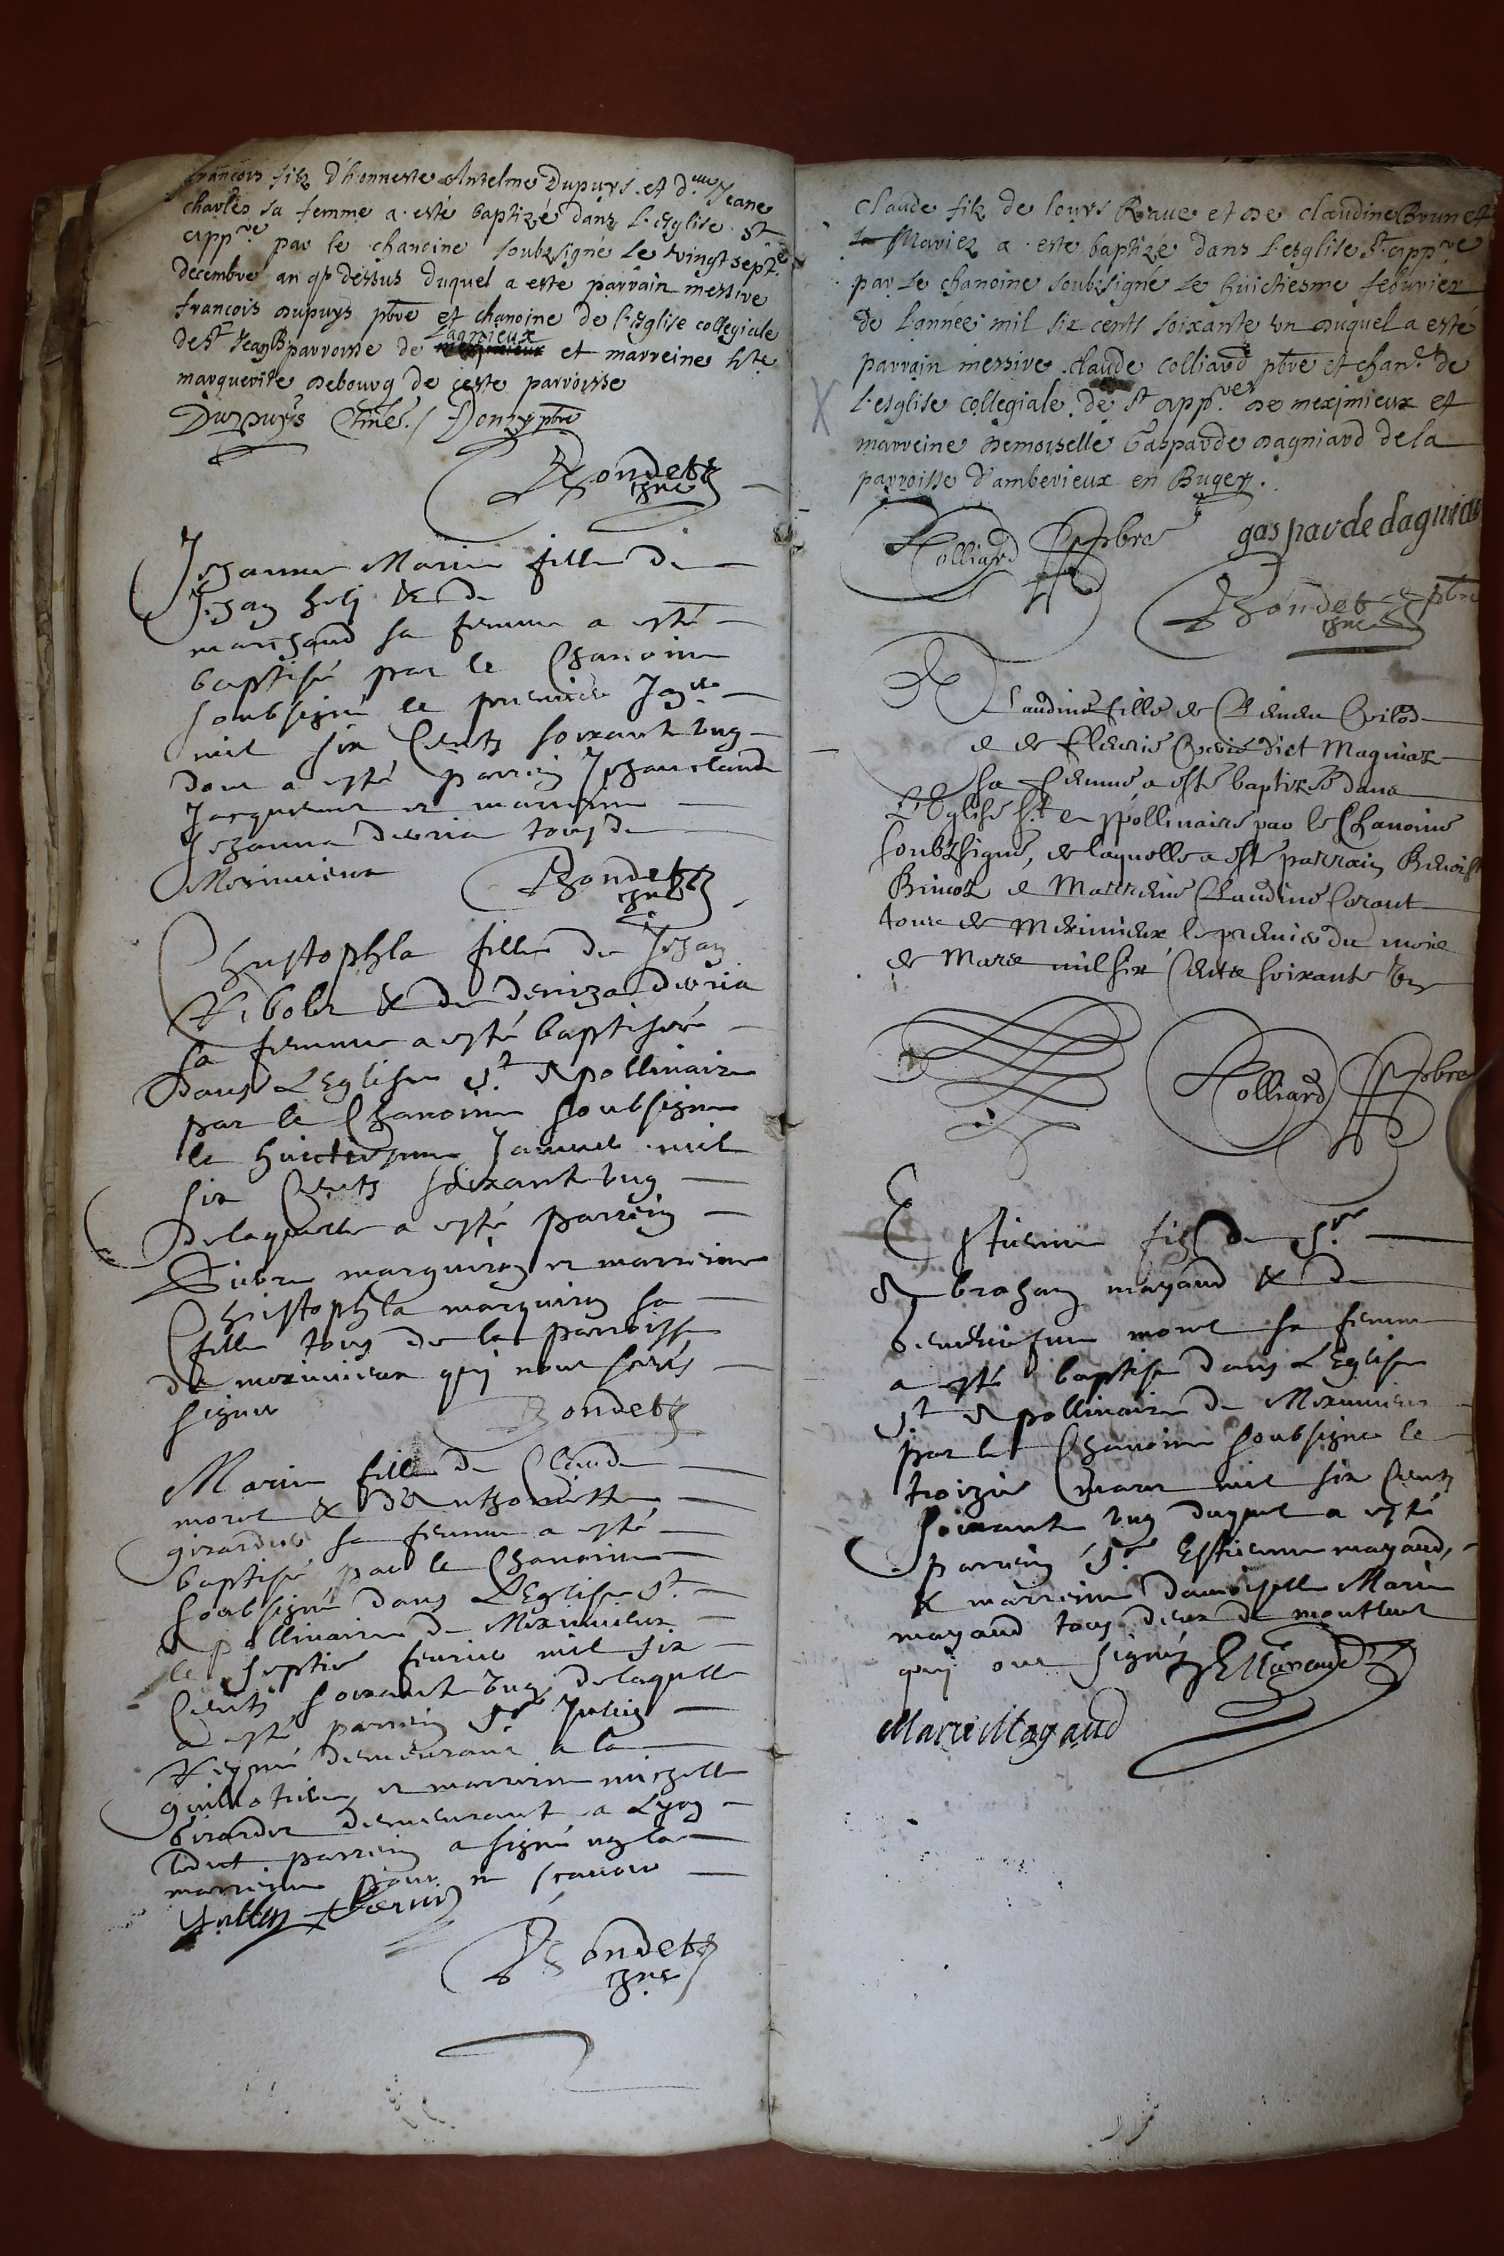 francois filz d'honneste Antelme Dupuys et d.lle Jeane
charles sa femme a esté baptizé dans l'esglise St
app.re par le chanoine soubzsigné le vingt sept.e
decembre an q dessus duquel a esté parrain messire
francois dupuys pbre et chanoine de l'esglise collegiale
de St Jean B parroisse de Lagnieux et marreine h.te
marguerite debourg de ceste parroisse
Dupuys Chne. / Donzy pbre
Rondet
chne
Jehanne Marie fille de
Jehan et de
marchand sa femme a esté
baptisé par le Chanoine
soubsigné le premier Ja
mil six Cents soixant ung
dont a esté parrein Jehan claude
Jacquemet et marreine
Jehanna deuria tous de
Meximieux
Rondet
chne
Christophla fille de Jehan
et de deniza deuria
sa femme a esté baptisée
dans L'Eglise St Apollinaire
par le Chanoine soubsigné
le huictiesme Januier mil
six Cents soixant ung
de laquelle a esté parrein
Piebre marguiron et marreine
Christophla marguiron sa
fille tous de la parroisse
de meximieux qui nont sceus
signer
Rondet
Marie fille de Claude
morel & d'Anthoinette
girardier sa femme a esté
baptisé par le Chanoine
soubsigné dans L'Eglise St
Apollinaire de Meximieux
le septie feurier mil six
Cents soixant ung de laquelle
a esté parrein Sr Julien
demeurant a la
guillotiere et marreine michelle
Girardier demeurant a Lyon
ledict parrein a signé no la
marreine pour ne scauoir
Rondet
chne
claude filz de louys Raue et de claudine Brunet
Mariez a esté baptizé dans l'esglise St app.re
par le chanoine soubzsigné le huictiesme feburier
de l'année mil six cents soixante un duquel a esté
parrain messire claude colliard pbre et chan.e de
l'esglise collegiale de St app.re de meximieux et
marreine demoiselle Gasparde dagniard de la
parroisse d'amberieux en Bugey.
Colliard Pbre gasparde dagniar
Rondet pbre
chne
Claudine fille de
e de fleurie dict Magniat
sa femme a esté baptizée dans
L'Eglise St Appollinaire par le Chanoine
soubzsigné, de laquelle a esté parrain Benoist
e Marreine Claudine
tous de Meximieux le premier du mois
de Mars mil six Cents soixante un
Colliard Pbre
Estienne filz de Sr
Abraham mayaud & de
morel sa femme
a esté baptisé dans L'Eglise
St Apollinaire de Meximieux
par le Chanoine soubsigné le
troizie mars mil six Cents
soixant ung duquel a esté
parrein Sr Estienne mayaud,
& marreine damoyselle Marie
mayaud tous deux de montluel
qui ont signéz EMayaud
Marie Mayaud